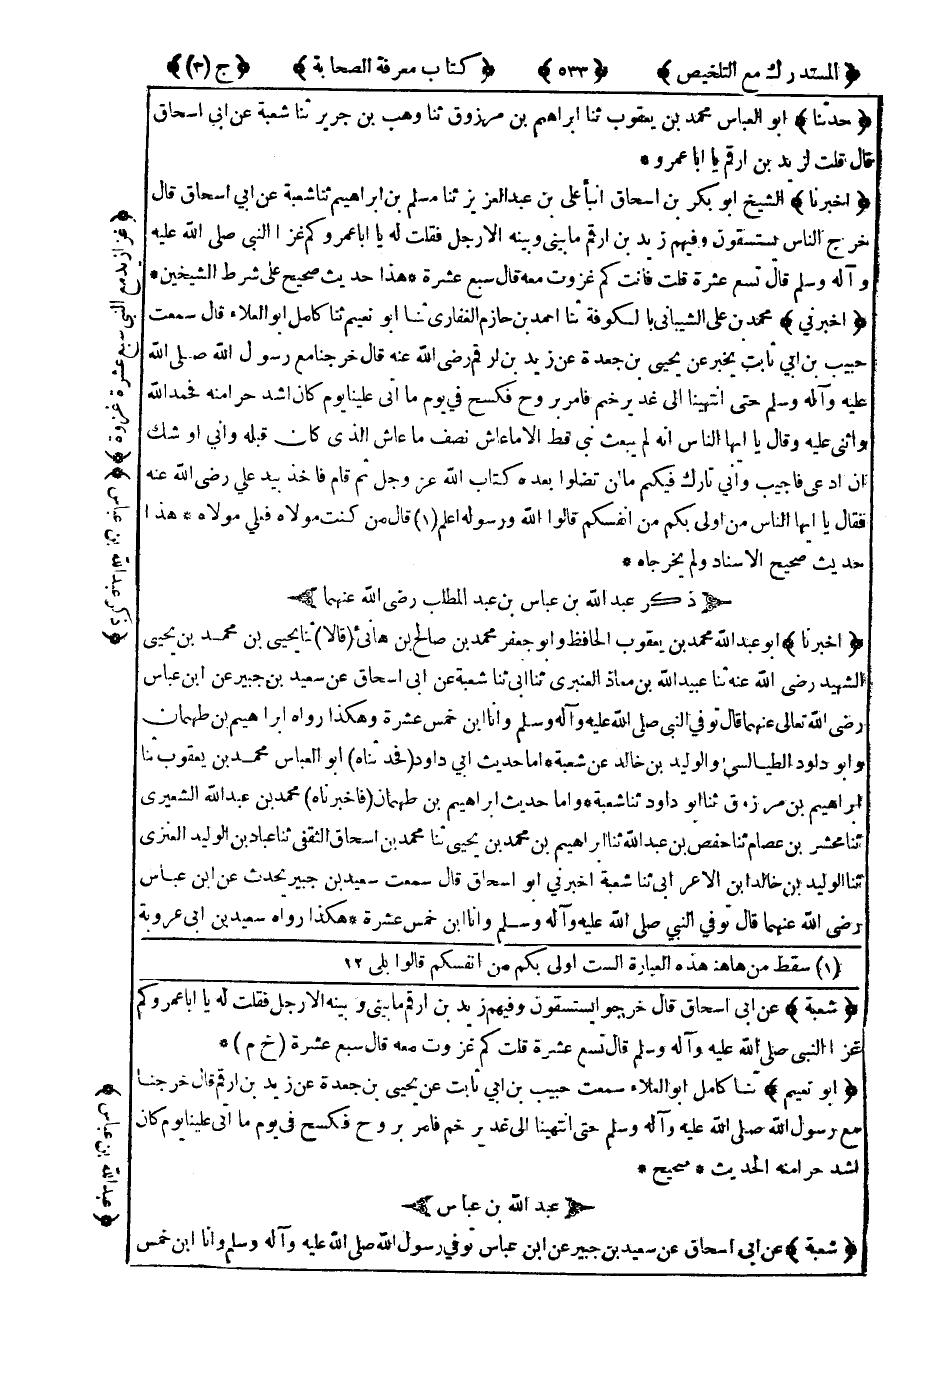 ﴿ المستدرك مع التلخيص ﴾ ﴿ ٥٣٣ ﴾ ﴿ كتاب معرفة الصحابة ﴾ ﴿ ج (٣) ﴾
﴿ حدثنا ﴾ ابو العباس محمد بن يعقوب ثنا ابراهيم بن مرزوق ثنا وهب بن جرير ثنا شعبة عن ابي اسحاق
قال قلت لزيد بن ارقم يا ابا عمرو *
﴿ اخبرنا ﴾ الشيخ ابو بكر بن اسحاق انبأ علي بن عبدالعزيز ثنا مسلم بن ابراهيم ثنا شعبة عن ابي اسحاق قال
خرج الناس يستسقون وفيهم زيد بن ارقم ما بيني وبينه الا رجل فقلت له يا ابا عمرو كم غزا النبي صلى الله عليه
وآله وسلم قال تسع عشرة قلت فانت كم غزوت معه قال سبع عشرة * هذا حديث صحيح على شرط الشيخين *
﴿ اخبرني ﴾ محمد بن علي الشيباني بالكوفة ثنا احمد بن حازم الغفاري ثنا ابو نعيم ثنا كامل ابو العلاء قال سمعت
حبيب بن ابي ثابت يخبر عن يحيى بن جعدة عن زيد بن ارقم رضى الله عنه قال خرجنا مع رسول الله صلى الله
عليه وآله وسلم حتى انتهينا الى غدير خم فامر بروح فكسح في يوم ما اتى علينا يوم كان اشد حرا منه فحمد الله
واثنى عليه وقال يا ايها الناس انه لم يبعث نبي قط الا ما عاش نصف ما عاش الذى كان قبله واني اوشك
ان ادعى فاجيب واني تارك فيكم ما لن تضلوا بعده كتاب الله عز وجل ثم قام فاخذ بيد علي رضى الله عنه
فقال يا ايها الناس من اولى بكم من انفسكم قالوا الله ورسوله اعلم (١) قال من كنت مولاه فعلي مولاه * هذا
حديث صحيح الاسناد ولم يخرجاه *
ذكر عبد الله بن عباس بن عبد المطلب رضى الله عنهما
﴿ اخبرنا ﴾ ابو عبد الله محمد بن يعقوب الحافظ وابو جعفر محمد بن صالح بن هانئ (قالا) ثنا يحيى بن محمد بن يحيى
الشهيد رضى الله عنه ثنا عبيد الله بن معاذ العنبرى ثنا ابى ثنا شعبة عن ابى اسحاق عن سعيد بن جبير عن ابن عباس
رضى الله تعالى عنهما قال توفي النبي صلى الله عليه وآله وسلم وانا ابن خمس عشرة وهكذا رواه ابراهيم بن طهمان
وابو داود الطيالسى والوليد بن خالد عن شعبة * اما حديث ابي داود (فحدثناه) ابو العباس محمد بن يعقوب ثنا
ابراهيم بن مرزوق ثنا ابو داود ثنا شعبة * واما حديث ابراهيم بن طهمان (فاخبرناه) محمد بن عبدالله الشعيرى
ثنا محشر بن عصام ثنا حفص بن عبد الله ثنا ابراهيم بن محمد بن يحيى ثنا محمد بن اسحاق الثقفى ثنا عباد بن الوليد العنزى
ثنا الوليد بن خالد ابن الاعر ابى ثنا شعبة اخبرني ابو اسحاق قال سمعت سعيد بن جبير يحدث عن ابن عباس
رضى الله عنهما قال توفي النبي صلى الله عليه وآله وسلم وانا ابن خمس عشرة * هكذا رواه سعيد بن ابى عروبة
(١) سقط من هاهنا هذه العبارة الست اولى بكم من انفسكم قالوا بلى ١٢
﴿ شعبة ﴾ عن ابى اسحاق قال خرجوا يستسقون وفيهم زيد بن ارقم ما بيني وبينه الا رجل فقلت له يا ابا عمرو كم
غزا النبي صلى الله عليه وآله وسلم قال تسع عشرة قلت كم غزوت معه قال سبع عشرة (خ م) *
﴿ ابو نعيم ﴾ ثنا كامل ابو العلاء سمعت حبيب بن ابي ثابت عن يحيى بن جعدة عن زيد بن ارقم قال خرجنا
مع رسول الله صلى الله عليه وآله وسلم حتى انتهينا الى غدير خم فامر بروح فكسح فى يوم ما اتى علينا يوم كان
اشد حرا منه الحديث * صحيح *
عبد الله بن عباس
﴿ شعبة ﴾ عن ابى اسحاق عن سعيد بن جبير عن ابن عباس توفي رسول الله صلى الله عليه وآله وسلم وانا ابن خمس
﴿ غزا زيد مع النبي سبع عشرة غزوة ﴾
﴿ ذكر عبد الله بن عباس ﴾
﴿ عبد الله بن عباس ﴾